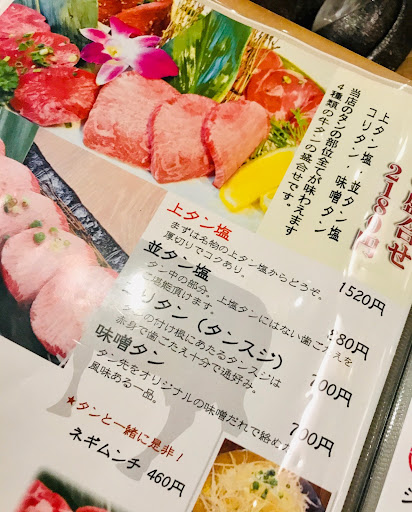 盛合せ
2180円
上タン塩・並タン塩
コリタン・味噌タン
当店のタンの部位全てが味わえます
4種類の牛タンの盛合せです。
上タン塩 1520円
まずは名物の上タン塩からどうぞ。
厚切りでコクあり。
並タン塩 980円
タン中の部分。上塩タンにはない歯ごたえを
ご堪能頂けます。
コリタン（タンスジ） 700円
タンの付け根にあたるタンスジは
赤身で歯ごたえ十分で通好み。
味噌タン 700円
タン先をオリジナルの味噌だれで絡めた
風味ある一品。
★タンと一緒に是非！
ネギムンチ 460円